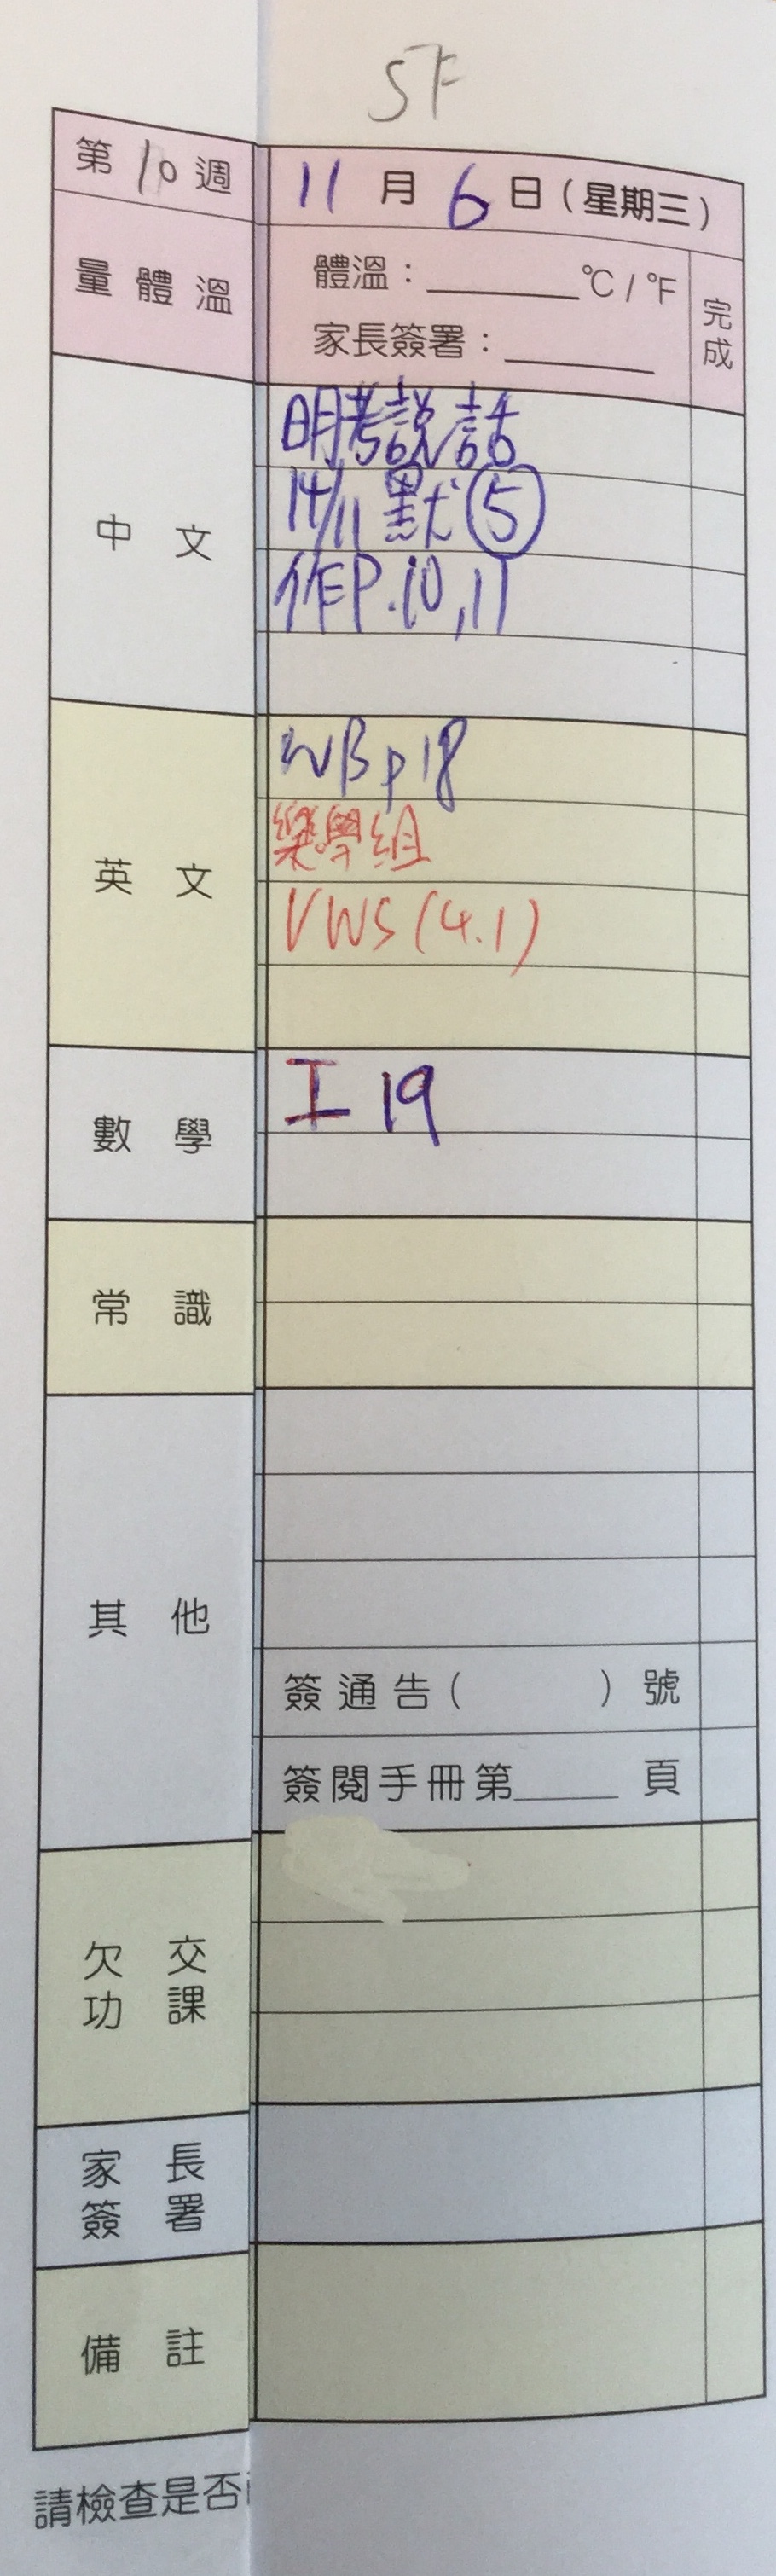 5F
第10週
11月6日(星期三)
量體溫
體溫：______°C/°F
家長簽署：______
完成
中文
明考說話
14/11 默⑤
作P.10,11
英文
WB p18
樂學組
VWS(4.1)
數學
工19
常識
其他
簽通告(    )號
簽閱手冊第______頁
欠交功課
家長簽署
備註
請檢查是否